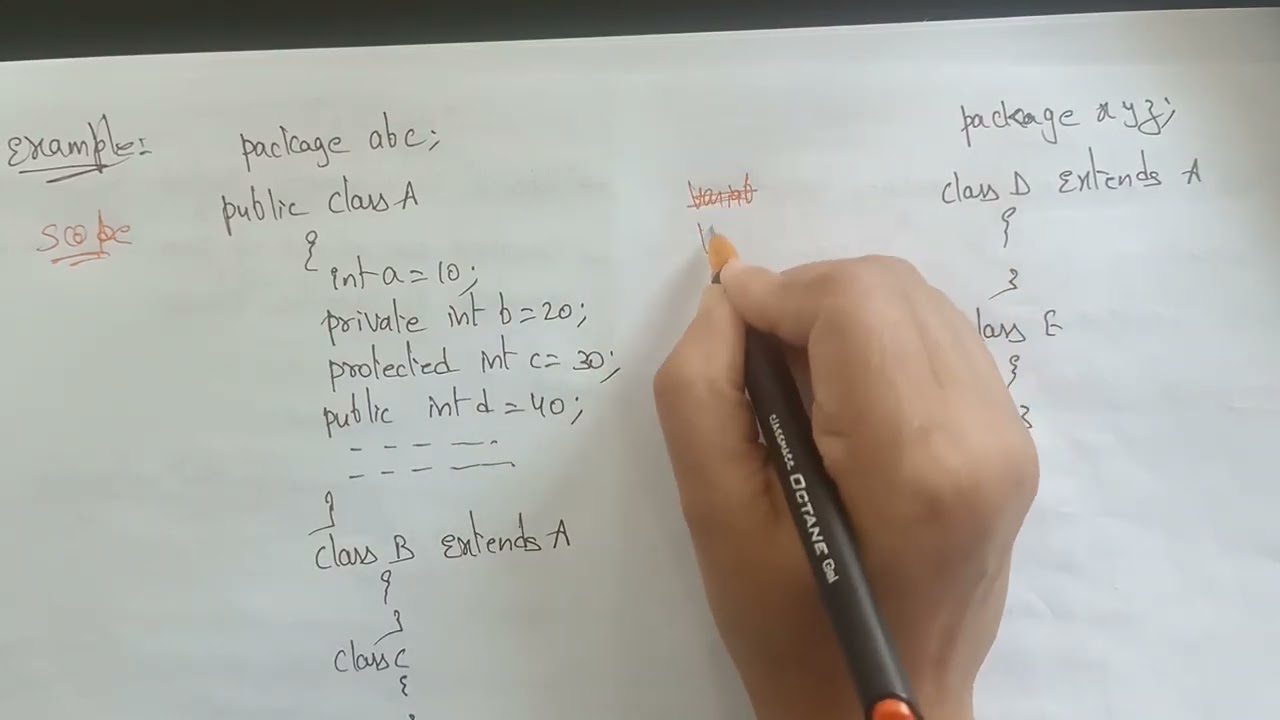 Example:
package abc;
public class A
{
int a = 10;
private int b = 20;
protected int c = 30;
public int d = 40;
- - - —.
- - - —
}
class B extends A
{
}
class C
{
scope
package xyz;
class D extends A
{
}
lass E
{
}
classmate OCTANE Gel